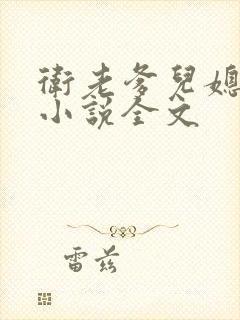 衛老爹兒媳
小說全文
雷茲